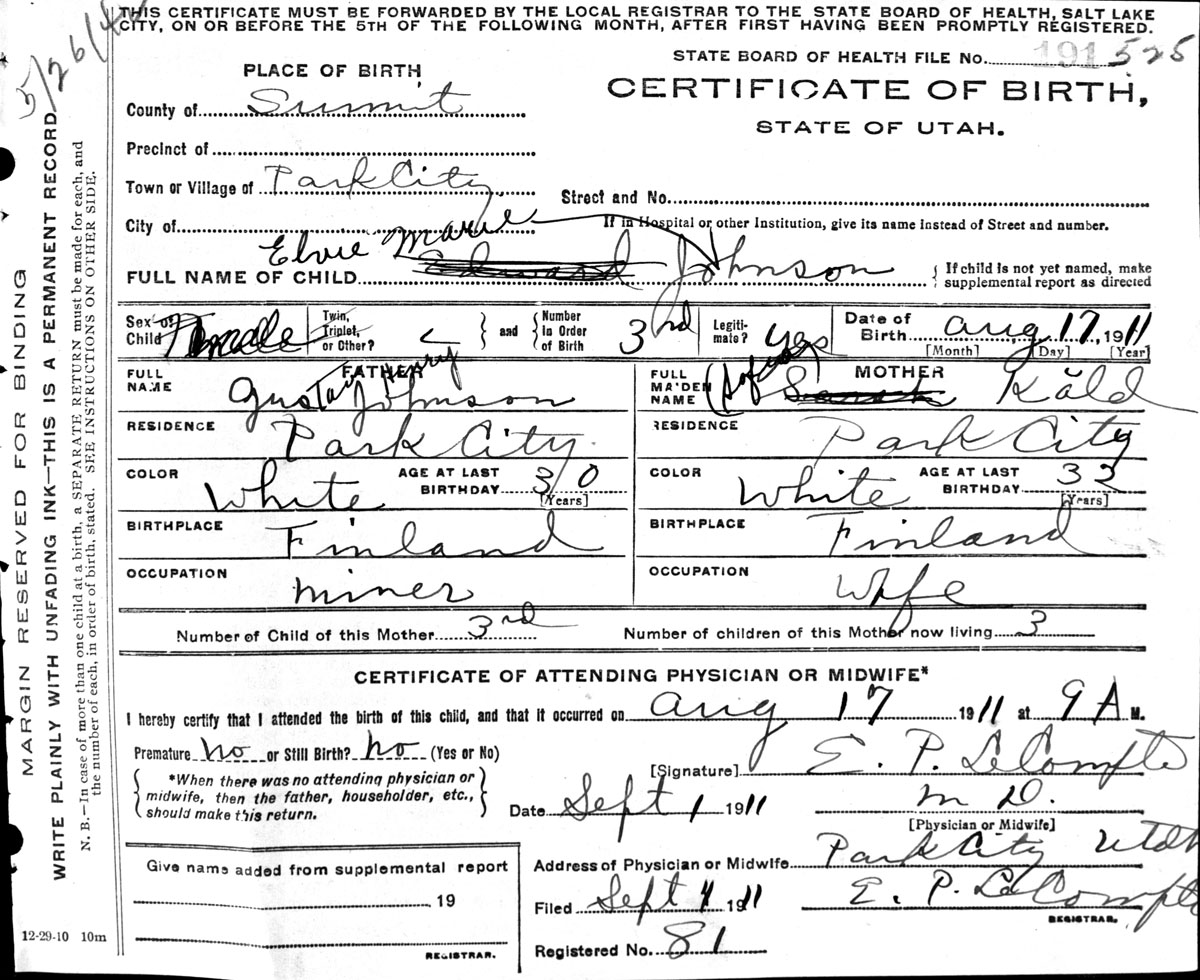 THIS CERTIFICATE MUST BE FORWARDED BY THE LOCAL REGISTRAR TO THE STATE BOARD OF HEALTH, SALT LAKE
CITY, ON OR BEFORE THE 5TH OF THE FOLLOWING MONTH, AFTER FIRST HAVING BEEN PROMPTLY REGISTERED.
5/26/42
STATE BOARD OF HEALTH FILE NO. 191 525
PLACE OF BIRTH
CERTIFICATE OF BIRTH,
STATE OF UTAH.
County of Summit
Precinct of
Town or Village of Park City
Street and No.
City of
If in Hospital or other Institution, give its name instead of Street and number.
Elvie Marie
FULL NAME OF CHILD Edward Johnson
{ If child is not yet named, make
supplemental report as directed
Sex of Child Female
Twin, Triplet, or Other?
} and {
Number in Order of Birth 3rd
Legiti-mate? yes
Date of Birth Aug 17, 1911
[Month] [Day] [Year]
FATHER
FULL NAME Gustav Henry Johnson
RESIDENCE Park City
COLOR White
AGE AT LAST BIRTHDAY 30
[Years]
BIRTHPLACE Finland
OCCUPATION miner
MOTHER
FULL MAIDEN NAME (Sofia) Kåld
RESIDENCE Park City
COLOR White
AGE AT LAST BIRTHDAY 33
[Years]
BIRTHPLACE Finland
OCCUPATION Wife
Number of Child of this Mother 3rd
Number of children of this Mother now living 3
CERTIFICATE OF ATTENDING PHYSICIAN OR MIDWIFE*
I hereby certify that I attended the birth of this child, and that it occurred on Aug 17 1911 at 9 A M.
Premature no or Still Birth? no (Yes or No)
[Signature] E. P. LeCompte
*When there was no attending physician or
midwife, then the father, householder, etc.,
should make this return.
Date Sept 1 1911
M D.
[Physician or Midwife]
Address of Physician or Midwife Park City Utah
Filed Sept 1 1911
E. P. LeCompte
REGISTRAR.
Registered No. 81
Give name added from supplemental report
19
REGISTRAR.
12-29-10 10m
MARGIN RESERVED FOR BINDING
WRITE PLAINLY WITH UNFADING INK—THIS IS A PERMANENT RECORD
N. B.—In case of more than one child at a birth, a SEPARATE RETURN must be made for each, and
the number of each, in order of birth, stated. SEE INSTRUCTIONS ON OTHER SIDE.